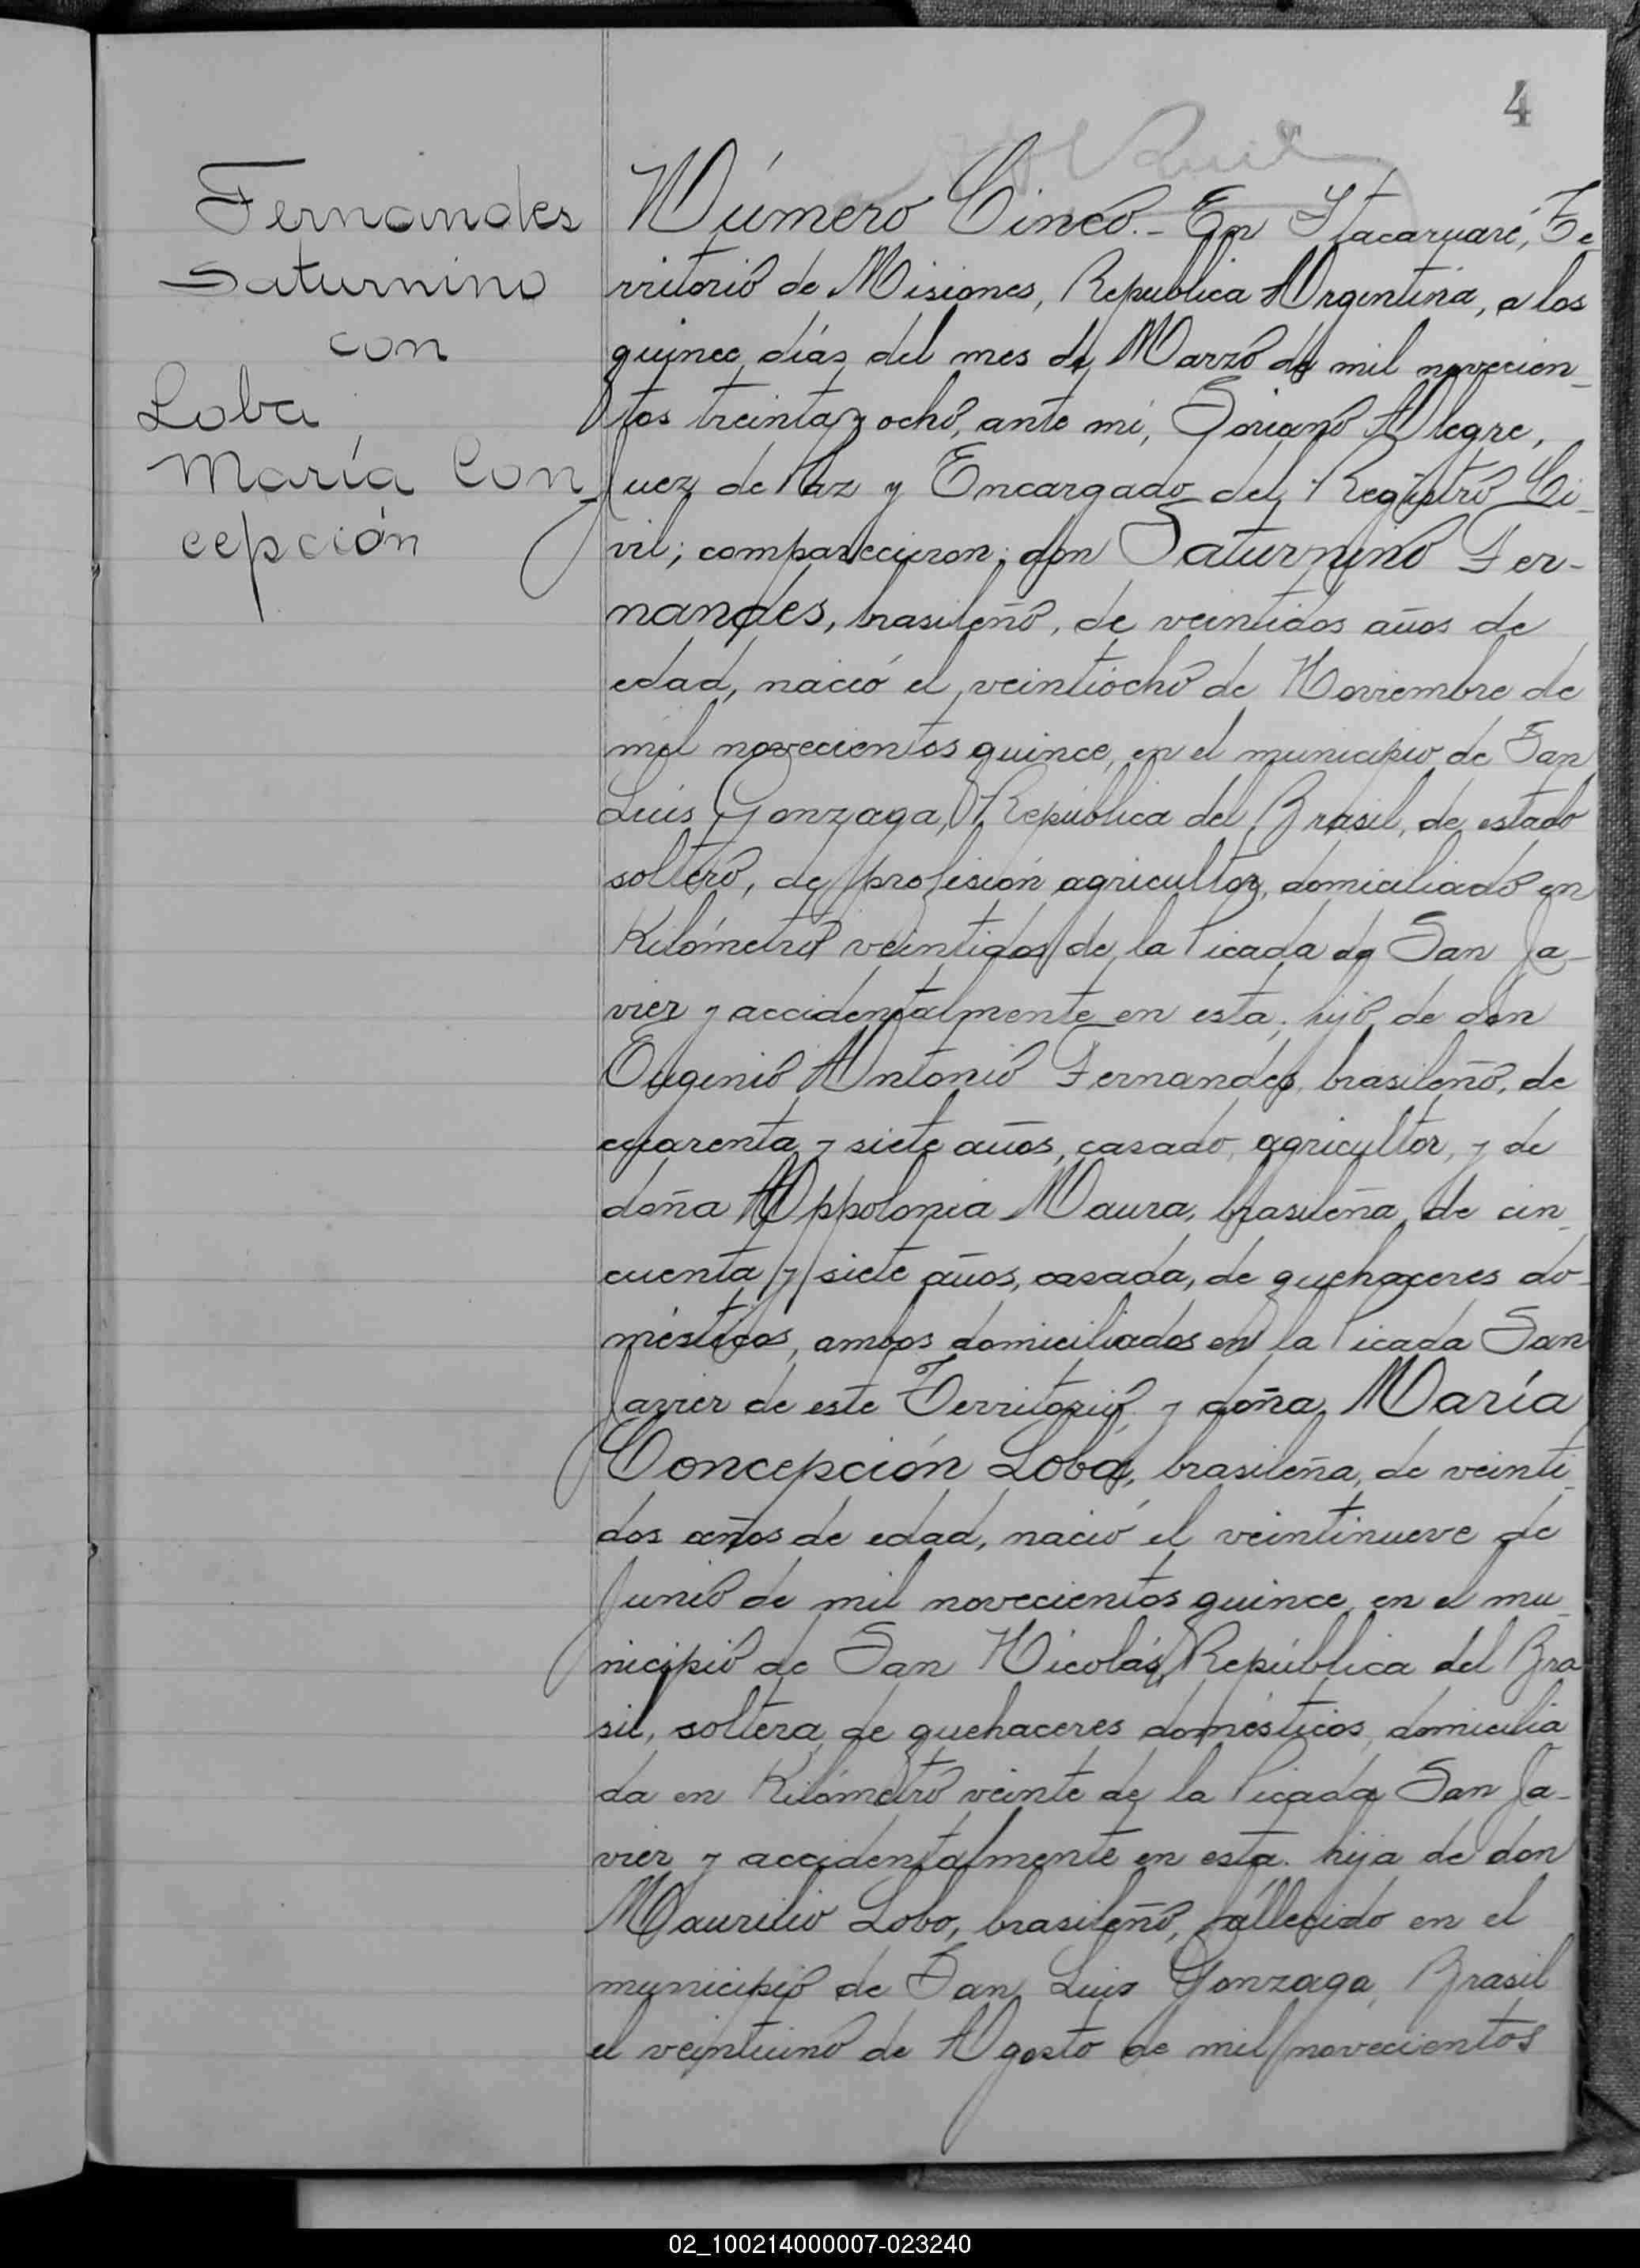 4
Fernandes
Saturnino
con
Loba
María Con-
cepción
Número Cinco.- En Itacaruaré, Te-
rritorio de Misiones, República Argentina, a los
quince días del mes de Marzo de mil novecien-
tos treinta y ocho, ante mí, Soriano Alegre,
Juez de Paz y Encargado del Registro Ci-
vil; comparecieron: don Saturnino Fer-
nandes, brasileño, de veintidos años de
edad, nació el veintiocho de Noviembre de
mil novecientos quince, en el municipio de San
Luis Gonzaga, República del Brasil, de estado
soltero, de profesión agricultor, domiciliado en
Kilómetro veintidos de la Picada de San Ja-
vier y accidentalmente en esta, hijo de don
Eugenio Antonio Fernandes, brasileño, de
cuarenta y siete años, casado, agricultor, y de
doña Appolonia Maura, brasileña, de cin-
cuenta y siete años, casada, de quehaceres do-
mésticos, ambos domiciliados en la Picada San
Javier de este Territorio, y doña María
Concepción Loba, brasileña, de veinti-
dos años de edad, nació el veintinueve de
Junio de mil novecientos quince, en el mu-
nicipio de San Nicolás, República del Bra-
sil, soltera, de quehaceres domésticos, domicilia
da en Kilómetro veinte de la Picada San Ja-
vier y accidentalmente en esta. hija de don
Maurilio Lobo, brasileño, fallecido en el
municipio de San Luis Gonzaga, Brasil
el veintiuno de Agosto de mil novecientos
02_100214000007-023240